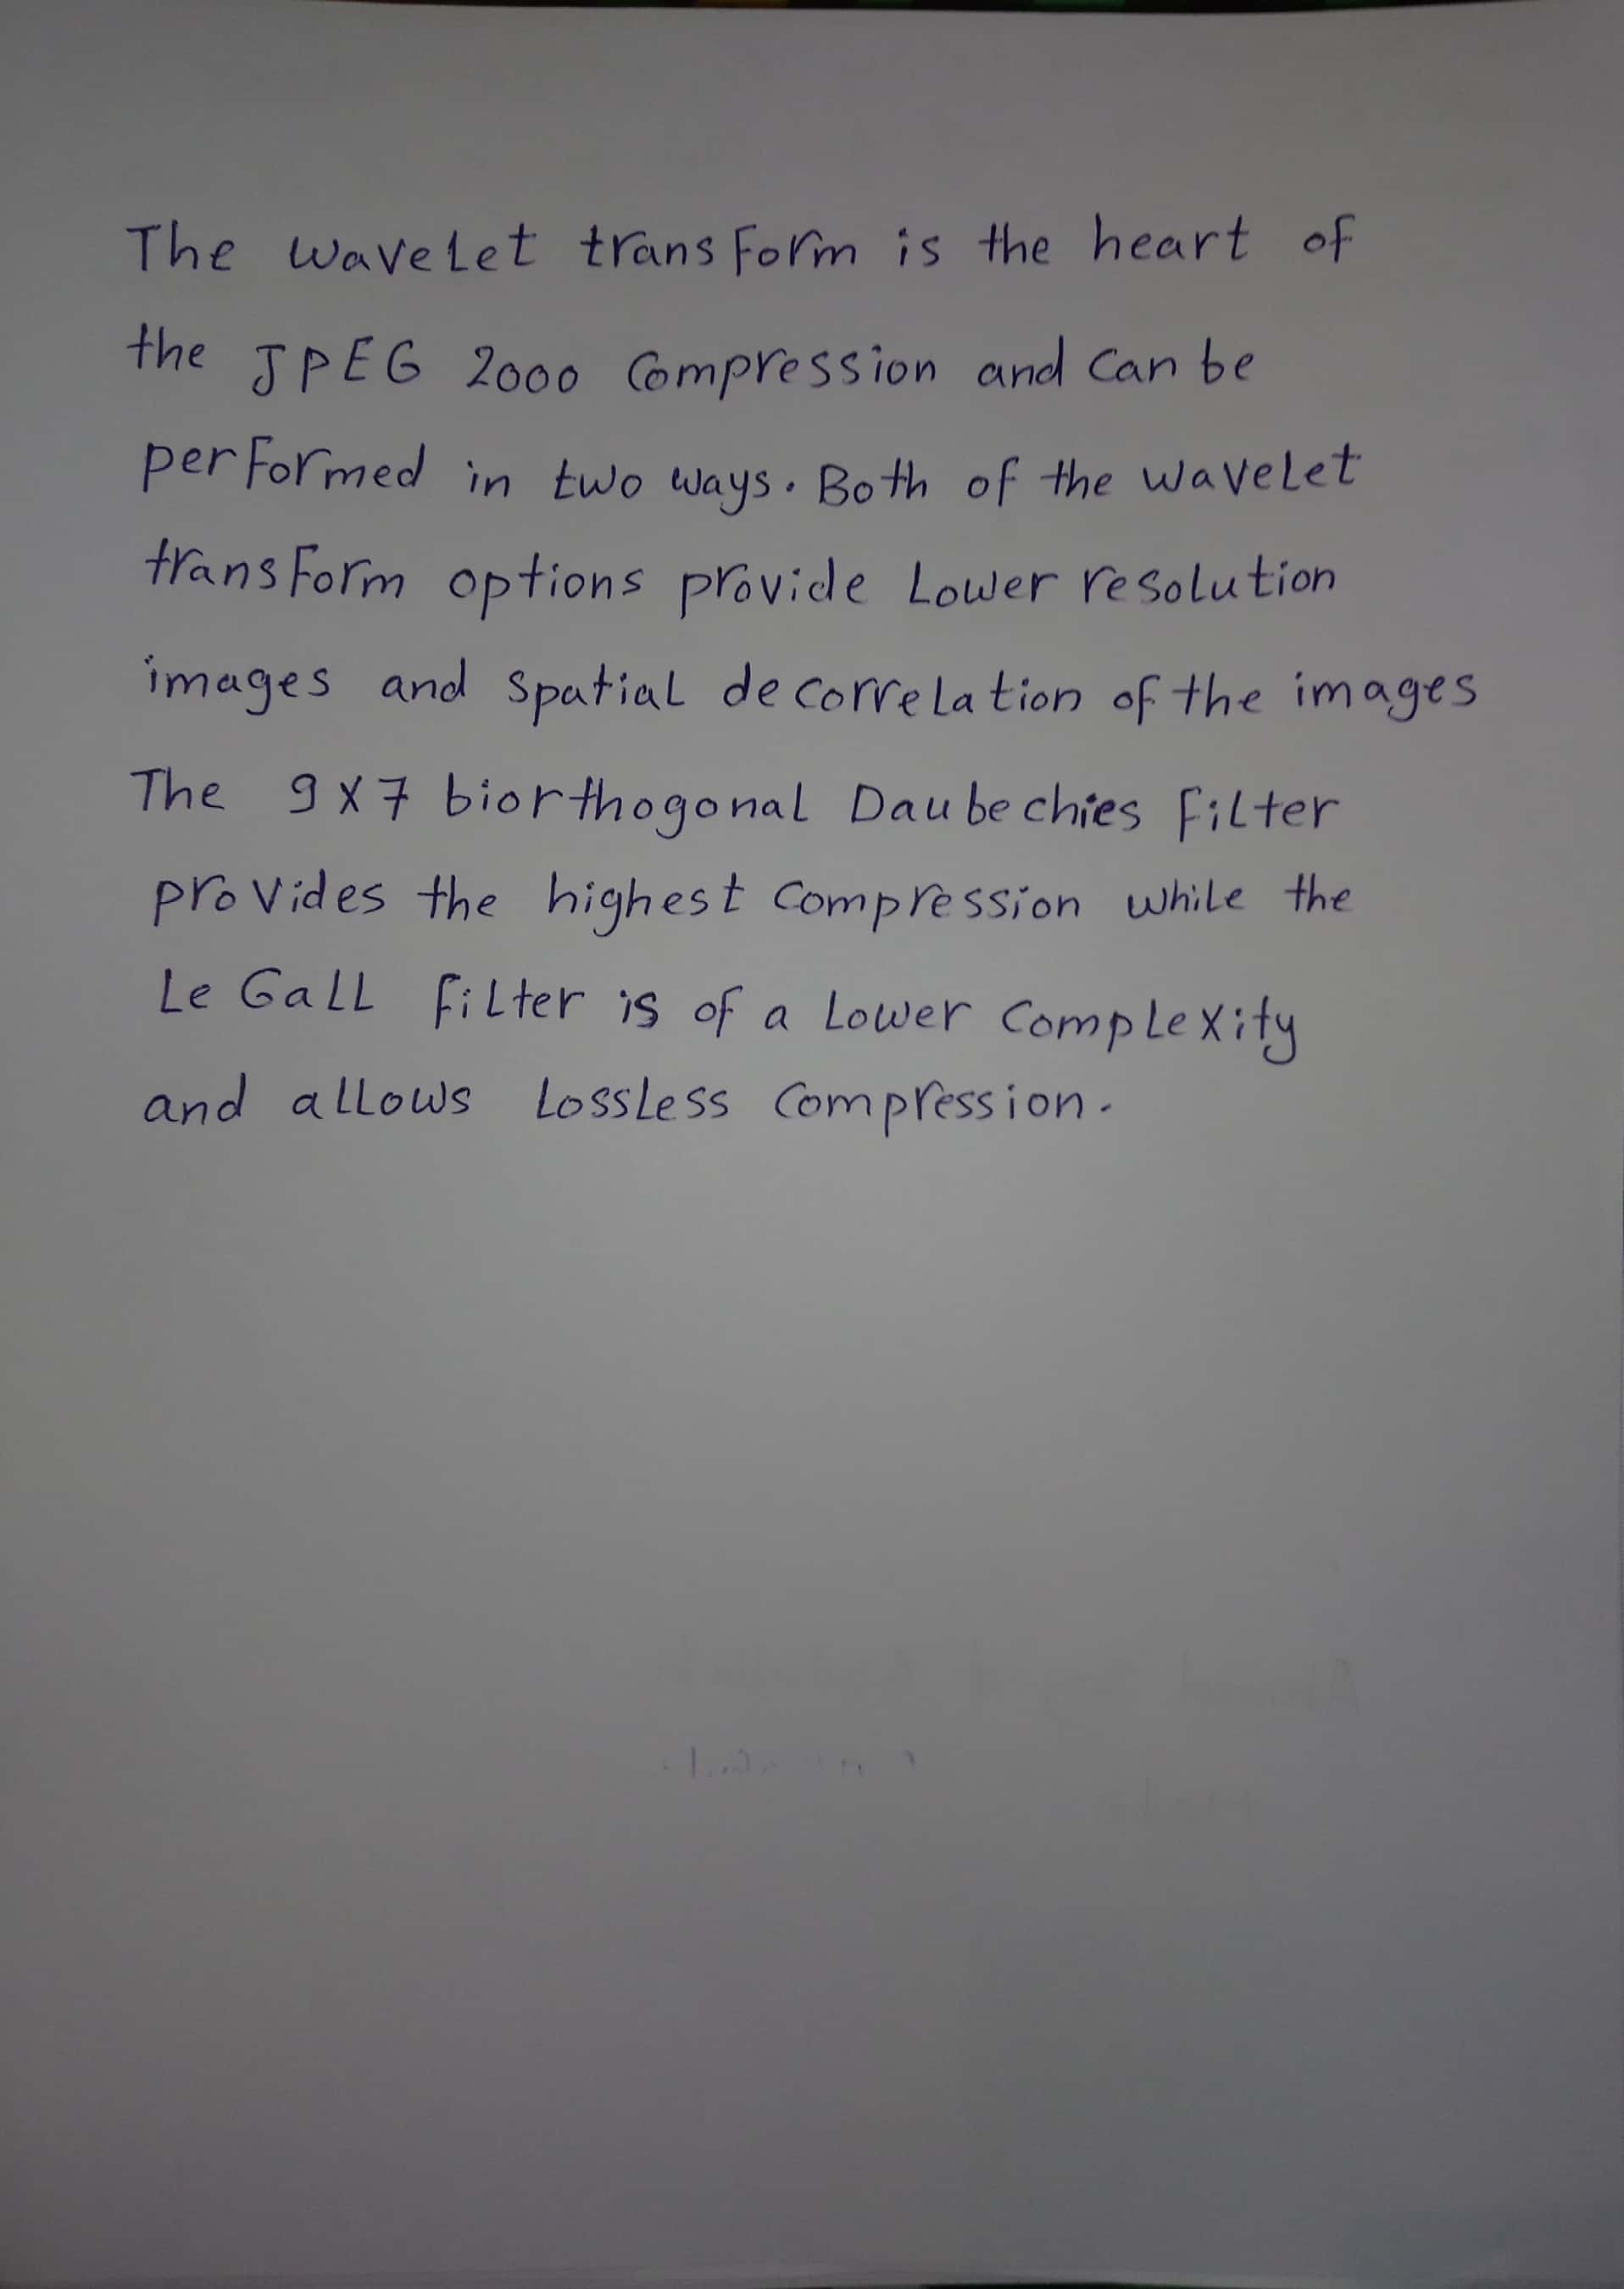 The wavelet transform is the heart of
the JPEG 2000 compression and can be
performed in two ways. Both of the wavelet
transform options provide lower resolution
images and spatial decorrelation of the images
The 9x7 biorthogonal Daubechies filter
provides the highest compression while the
Le Gall filter is of a lower complexity
and allows lossless compression.